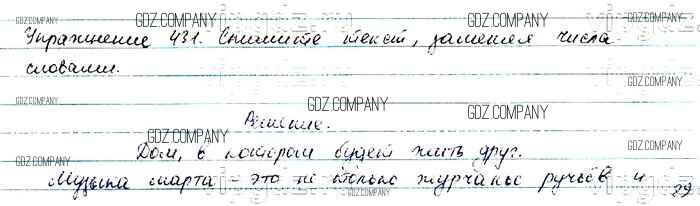 Упражнение 431. Спишите текст, заменяя числа
словами.
Решение.
Дом, в котором будет жить друг.
Музыка марта - это не только журчанье ручьёв и
29
GDZ.COMPANY
GDZ.COMPANY
GDZ.COMPANY
GDZ.COMPANY
GDZ.COMPANY
GDZ.COMPANY
GDZ.COMPANY
GDZ.COMPANY
GDZ.COMPANY